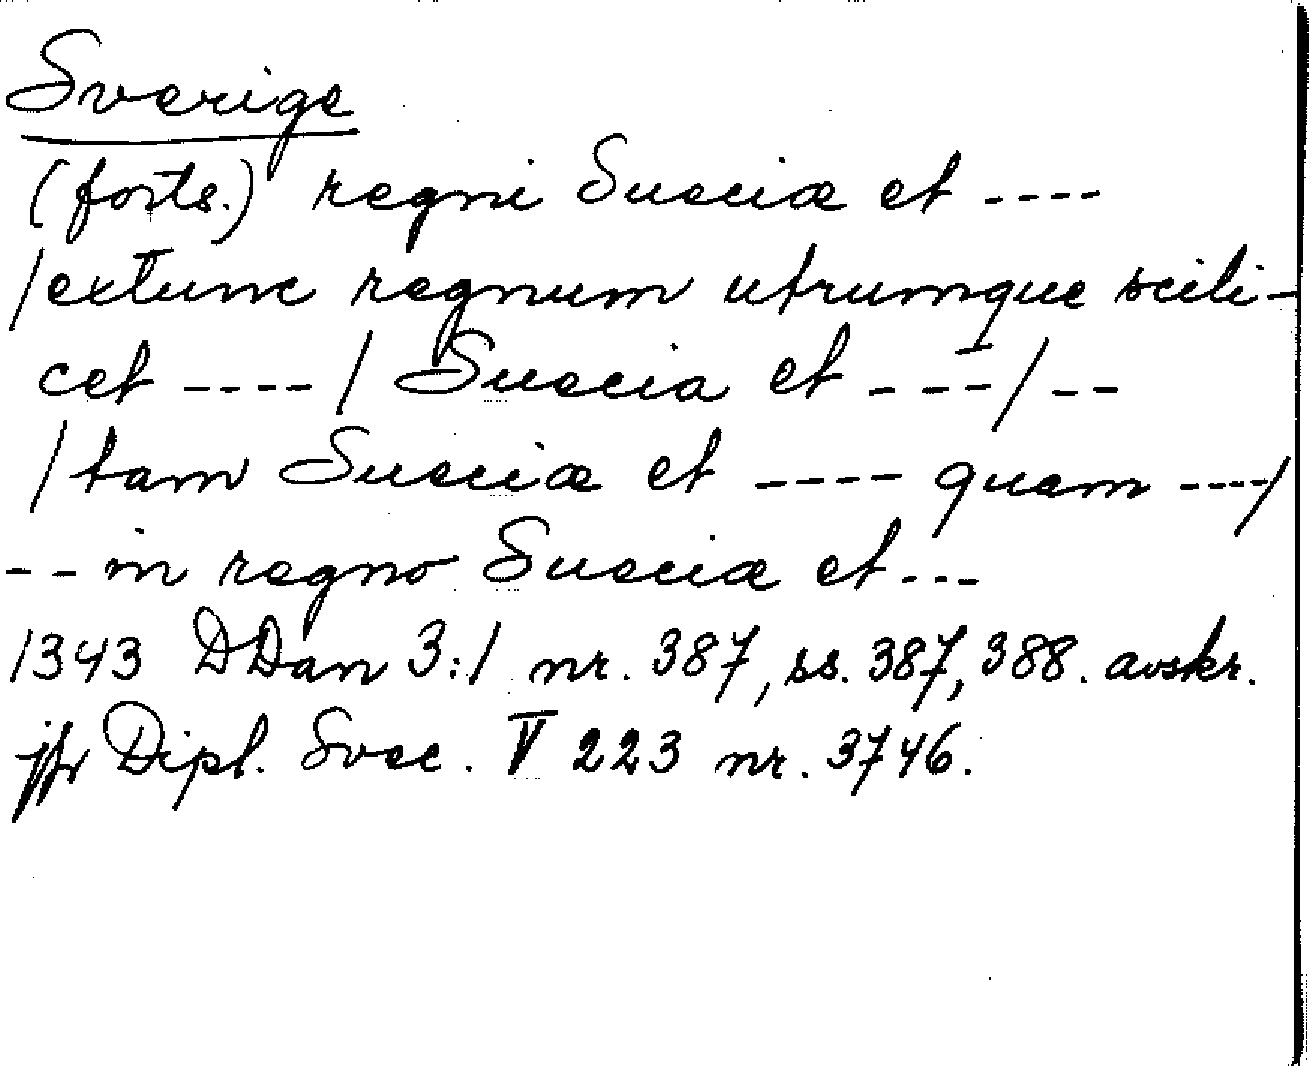 Sverige
(forts.) regni Sueciæ et ----
/extunc regnum utrumque scili-
cet ----/ Suecia et ---/ --
/tam Sueciæ et ---- quam ---/
-- in regno Sueciæ et ---
1343 DDan 3:1 nr. 387, ss. 387, 388. avskr.
jfr Dipl. Svec. V 223 nr. 3746.